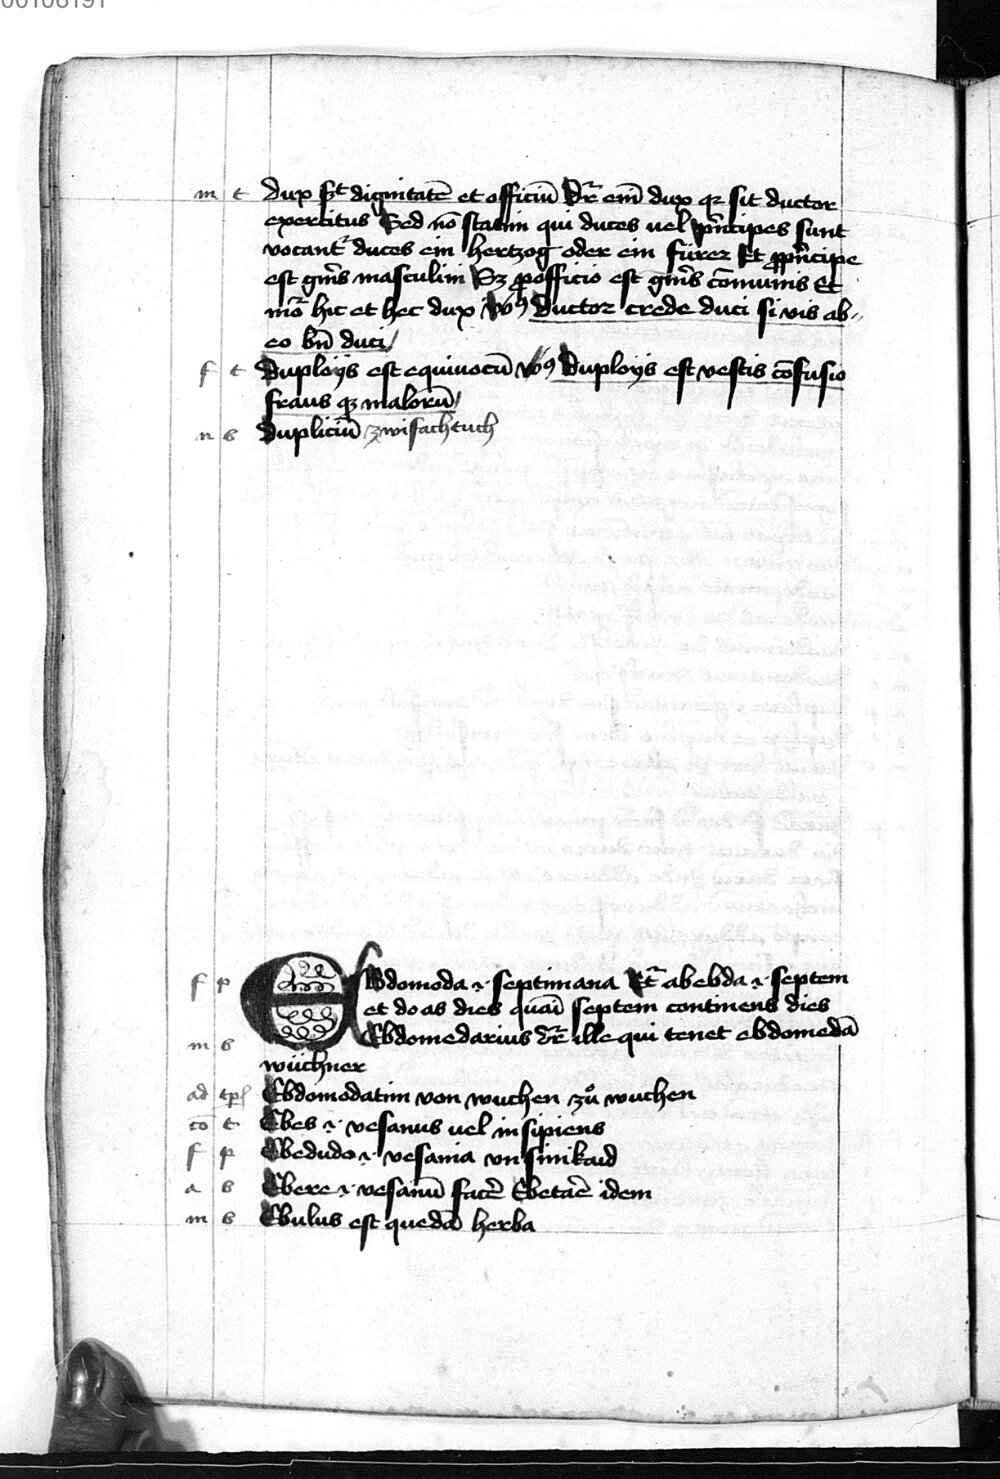 00106191
m t dux st dignitatē et officiū Dr̄ em̄ dux qr sit ductor
exercitus Sed nō statim qui duces uel p̄ncipes sunt
vocant᷑ duces ein hertzog oder ein fürer Et p̄ncipe
est gn̄is masculini Sz ꝓ officio est gn̄is cōmunis Et
mō hic et hec dux Vꝰ ductor crede duci si vis ab-
eo bn̄ duci
f t duployis est equiuocū Vꝰ duployis est vestis cōfusio
fraus qz malorū
n s dupliciū zwifachtuch
f p EBdomoda .i. septimana Et᷑ ab ebda .i. septem
et doas dies quasi septem continens dies
m s Ebdomedarius dr̄ ille qui tenet ebdomedā
wüchner
ad Ebdomodatim von wuchen zů wuchen
cō t Ebes .i. vesanus uel insipiens
f p Ebedudo .i. vesania vnsinikaid
a s Ebere .i. vesanū facē Ebetaē idem
m s Ebulus est quedā herba